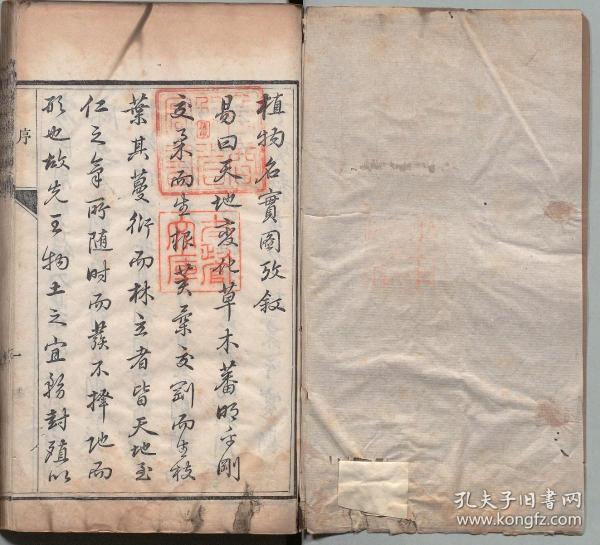 植物名實圖攷敘
易曰天地變化草木蕃明乎剛
交柔而生根荄柔交剛而生枝
葉其蔓衍而林立者皆天地至
仁之氣所隨時而發不擇地而
形也故先王物土之宜務封殖以
序
孔夫子旧书网
www.kongfz.com